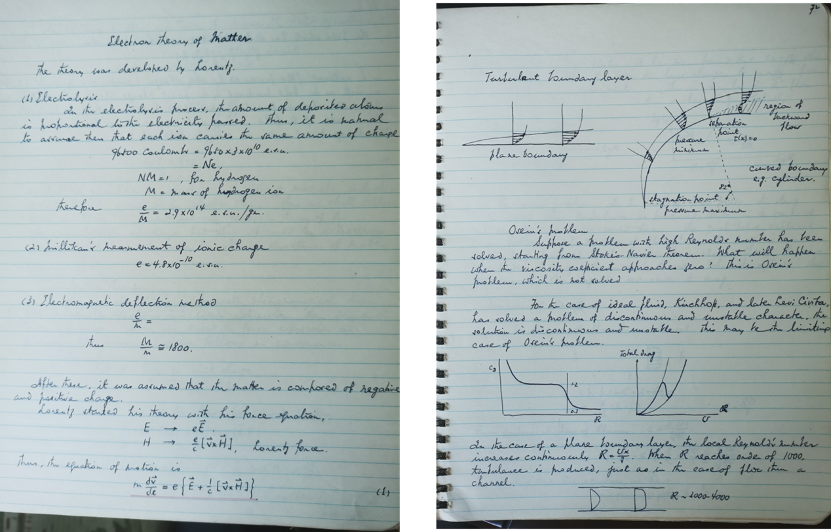 Electron theory of Matter
The theory was developed by Lorentz.
(1) Electrolysis
In the electrolysis process, the amount of deposited atoms
is proportional to the electricity passed. Thus, it is natural
to assume then that each ion carries the same amount of charge
96500 Coulombs = 9650 x 3 x 10^10 e.s.u.
= Ne,
NM = 1, for hydrogen
M = mass of hydrogen ion
therefore e/M = 2.9 x 10^14 e.s.u./gr.
(2) Millikan's measurement of ionic charge
e = 4.8 x 10^-10 e.s.u.
(3) Electromagnetic deflection method
e/m =
thus M/m ≅ 1800.
After these, it was assumed that the matter is composed of negative
and positive charge.
Lorentz started his theory with his force equation,
E → eE⃗.
H → e/c [v⃗xH⃗], Lorentz force.
Thus, the equation of motion is
m dv⃗/dt = e{E⃗ + 1/c [v⃗xH⃗]}
(1)
72
Turbulent boundary layer
region of
backward
flow
separation
point
τ(x)=0
pressure
minimum
plane boundary
curved boundary
e.g. cylinder.
82°
stagnation point
pressure maximum
Osein's problem
Suppose a problem with high Reynold's number has been
solved, starting from Stokes Navier theorem. What will happen
when the viscosity coeficient approaches zero? This is Osein's
problem, which is not solved
For the case of ideal fluid, Kirchhof, and late Levi Civita,
has solved a problem of discontinuous and unstable character, the
solution is discontinuous and unstable. This may be the limiting
case of Osein's problem.
Total drag
R
U
In the case of a plane boundary layer, the local Reynold's number
increases continuously R = Ux/ν. When R reaches order of 1000,
turbulance is produced, just as in the case of flow thru a
channel.
R ~ 1000-4000